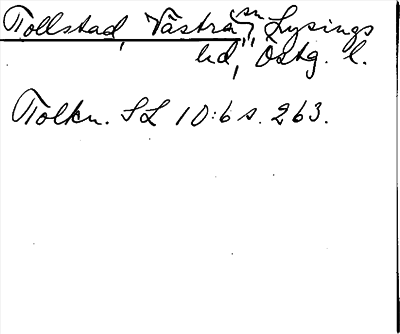 Tollstad, Västra sn, Lysings
hd, Östg. l.
Tolkn. SL 10:6 s. 263.